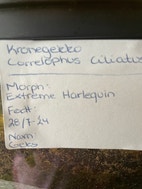 Kronegekko
Correlophus Ciliatus
Morph:
Extreme Harlequin
Født:
28/7-24
Navn:
Gekko